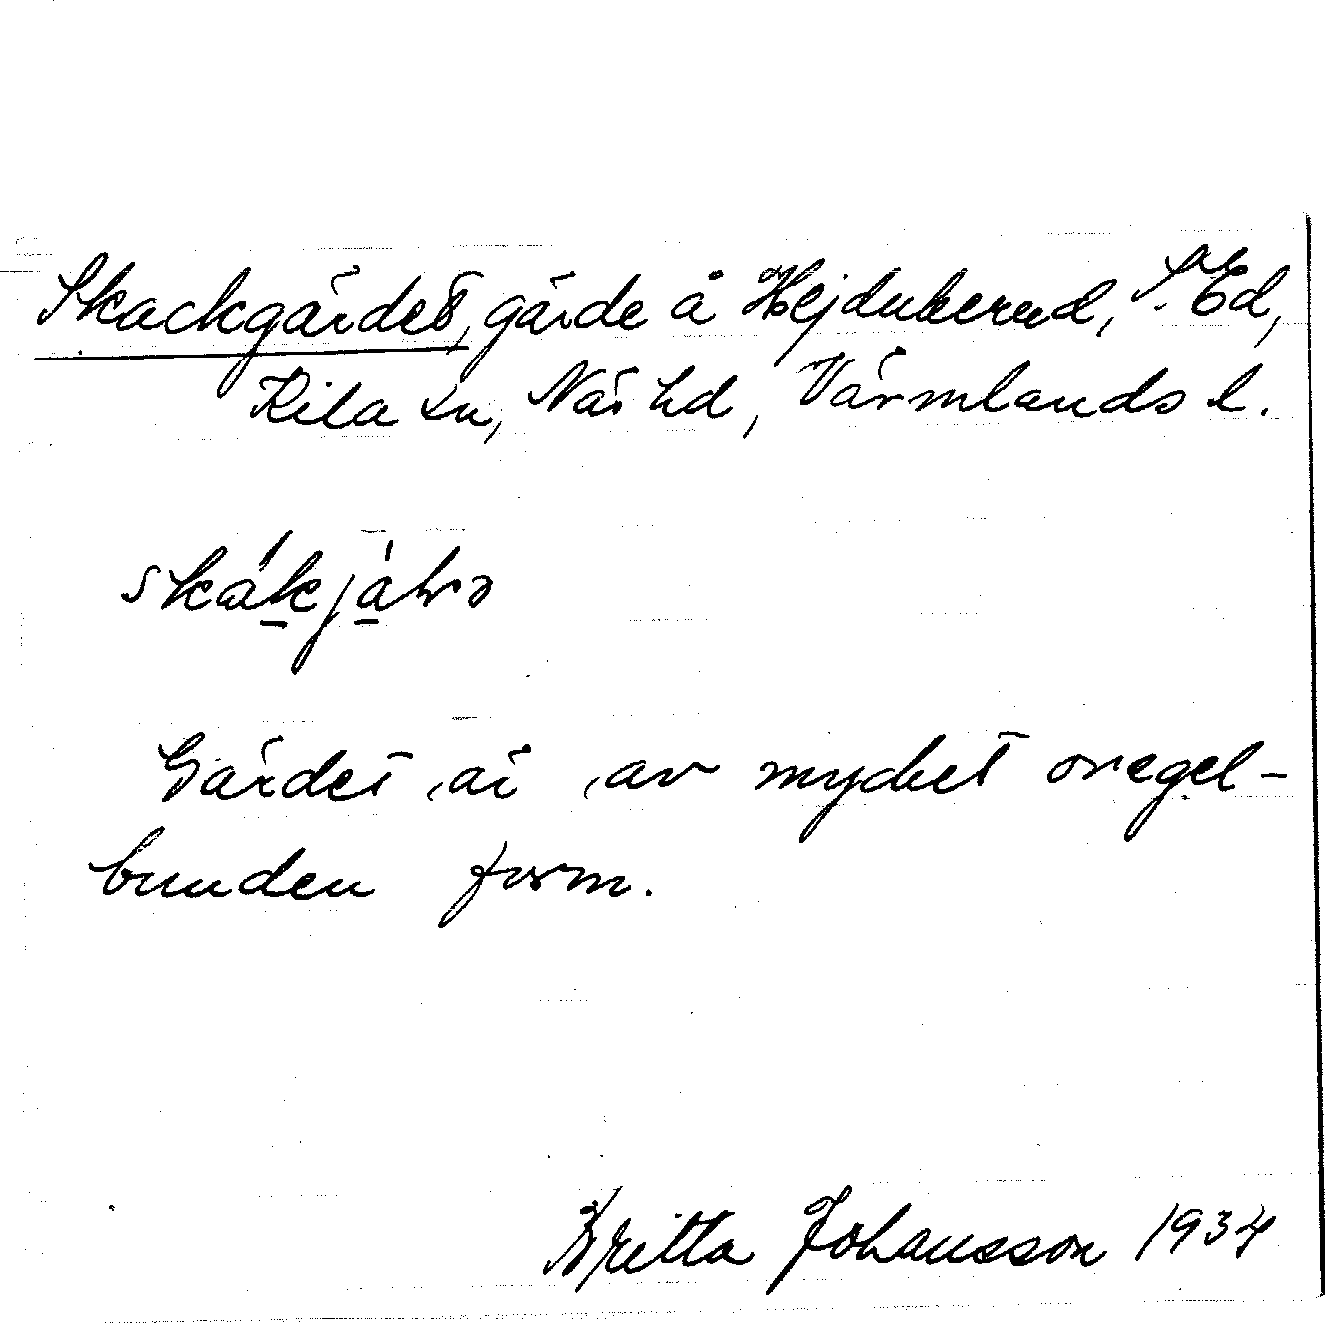 Skackgärdet, gärde å Hejdukerud, S. Ed,
Kila sn, Näs hd, Värmlands l.
Gärdet är av mycket oregel-
bunden form.
Britta Johansson 1934